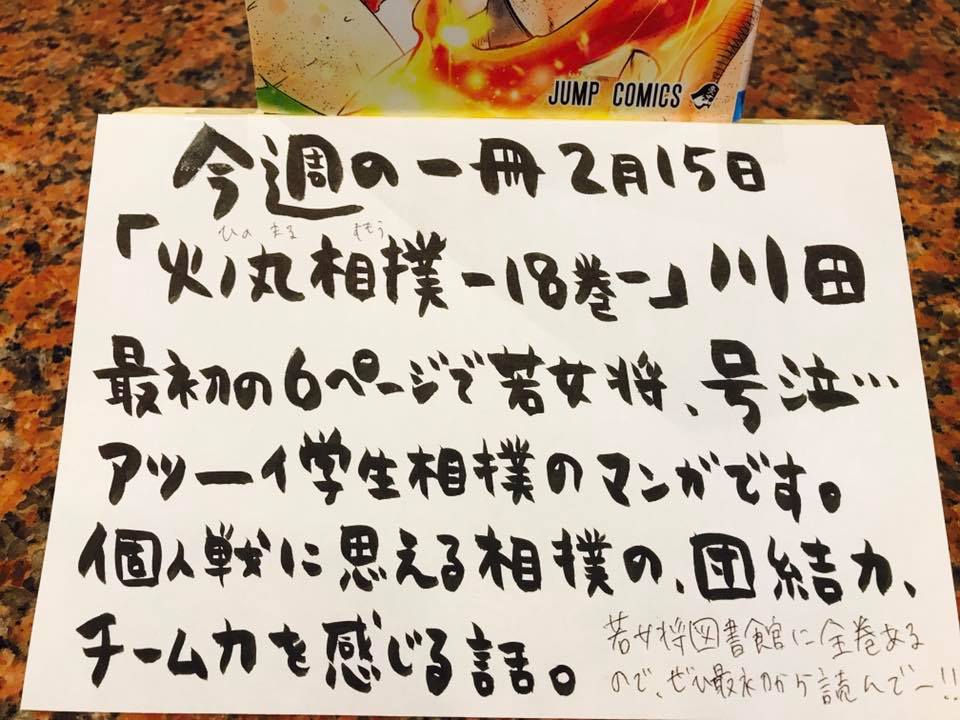 JUMP COMICS
今週の一冊 2月15日
ひのまる ずもう
「火ノ丸相撲-18巻-」川田
最初の6ページで若女将、号泣…
アツーイ学生相撲のマンガです。
個人戦に思える相撲の、団結力、
チーム力を感じる話。
若女将図書館に全巻ある
ので、ぜひ最初から読んでー!!